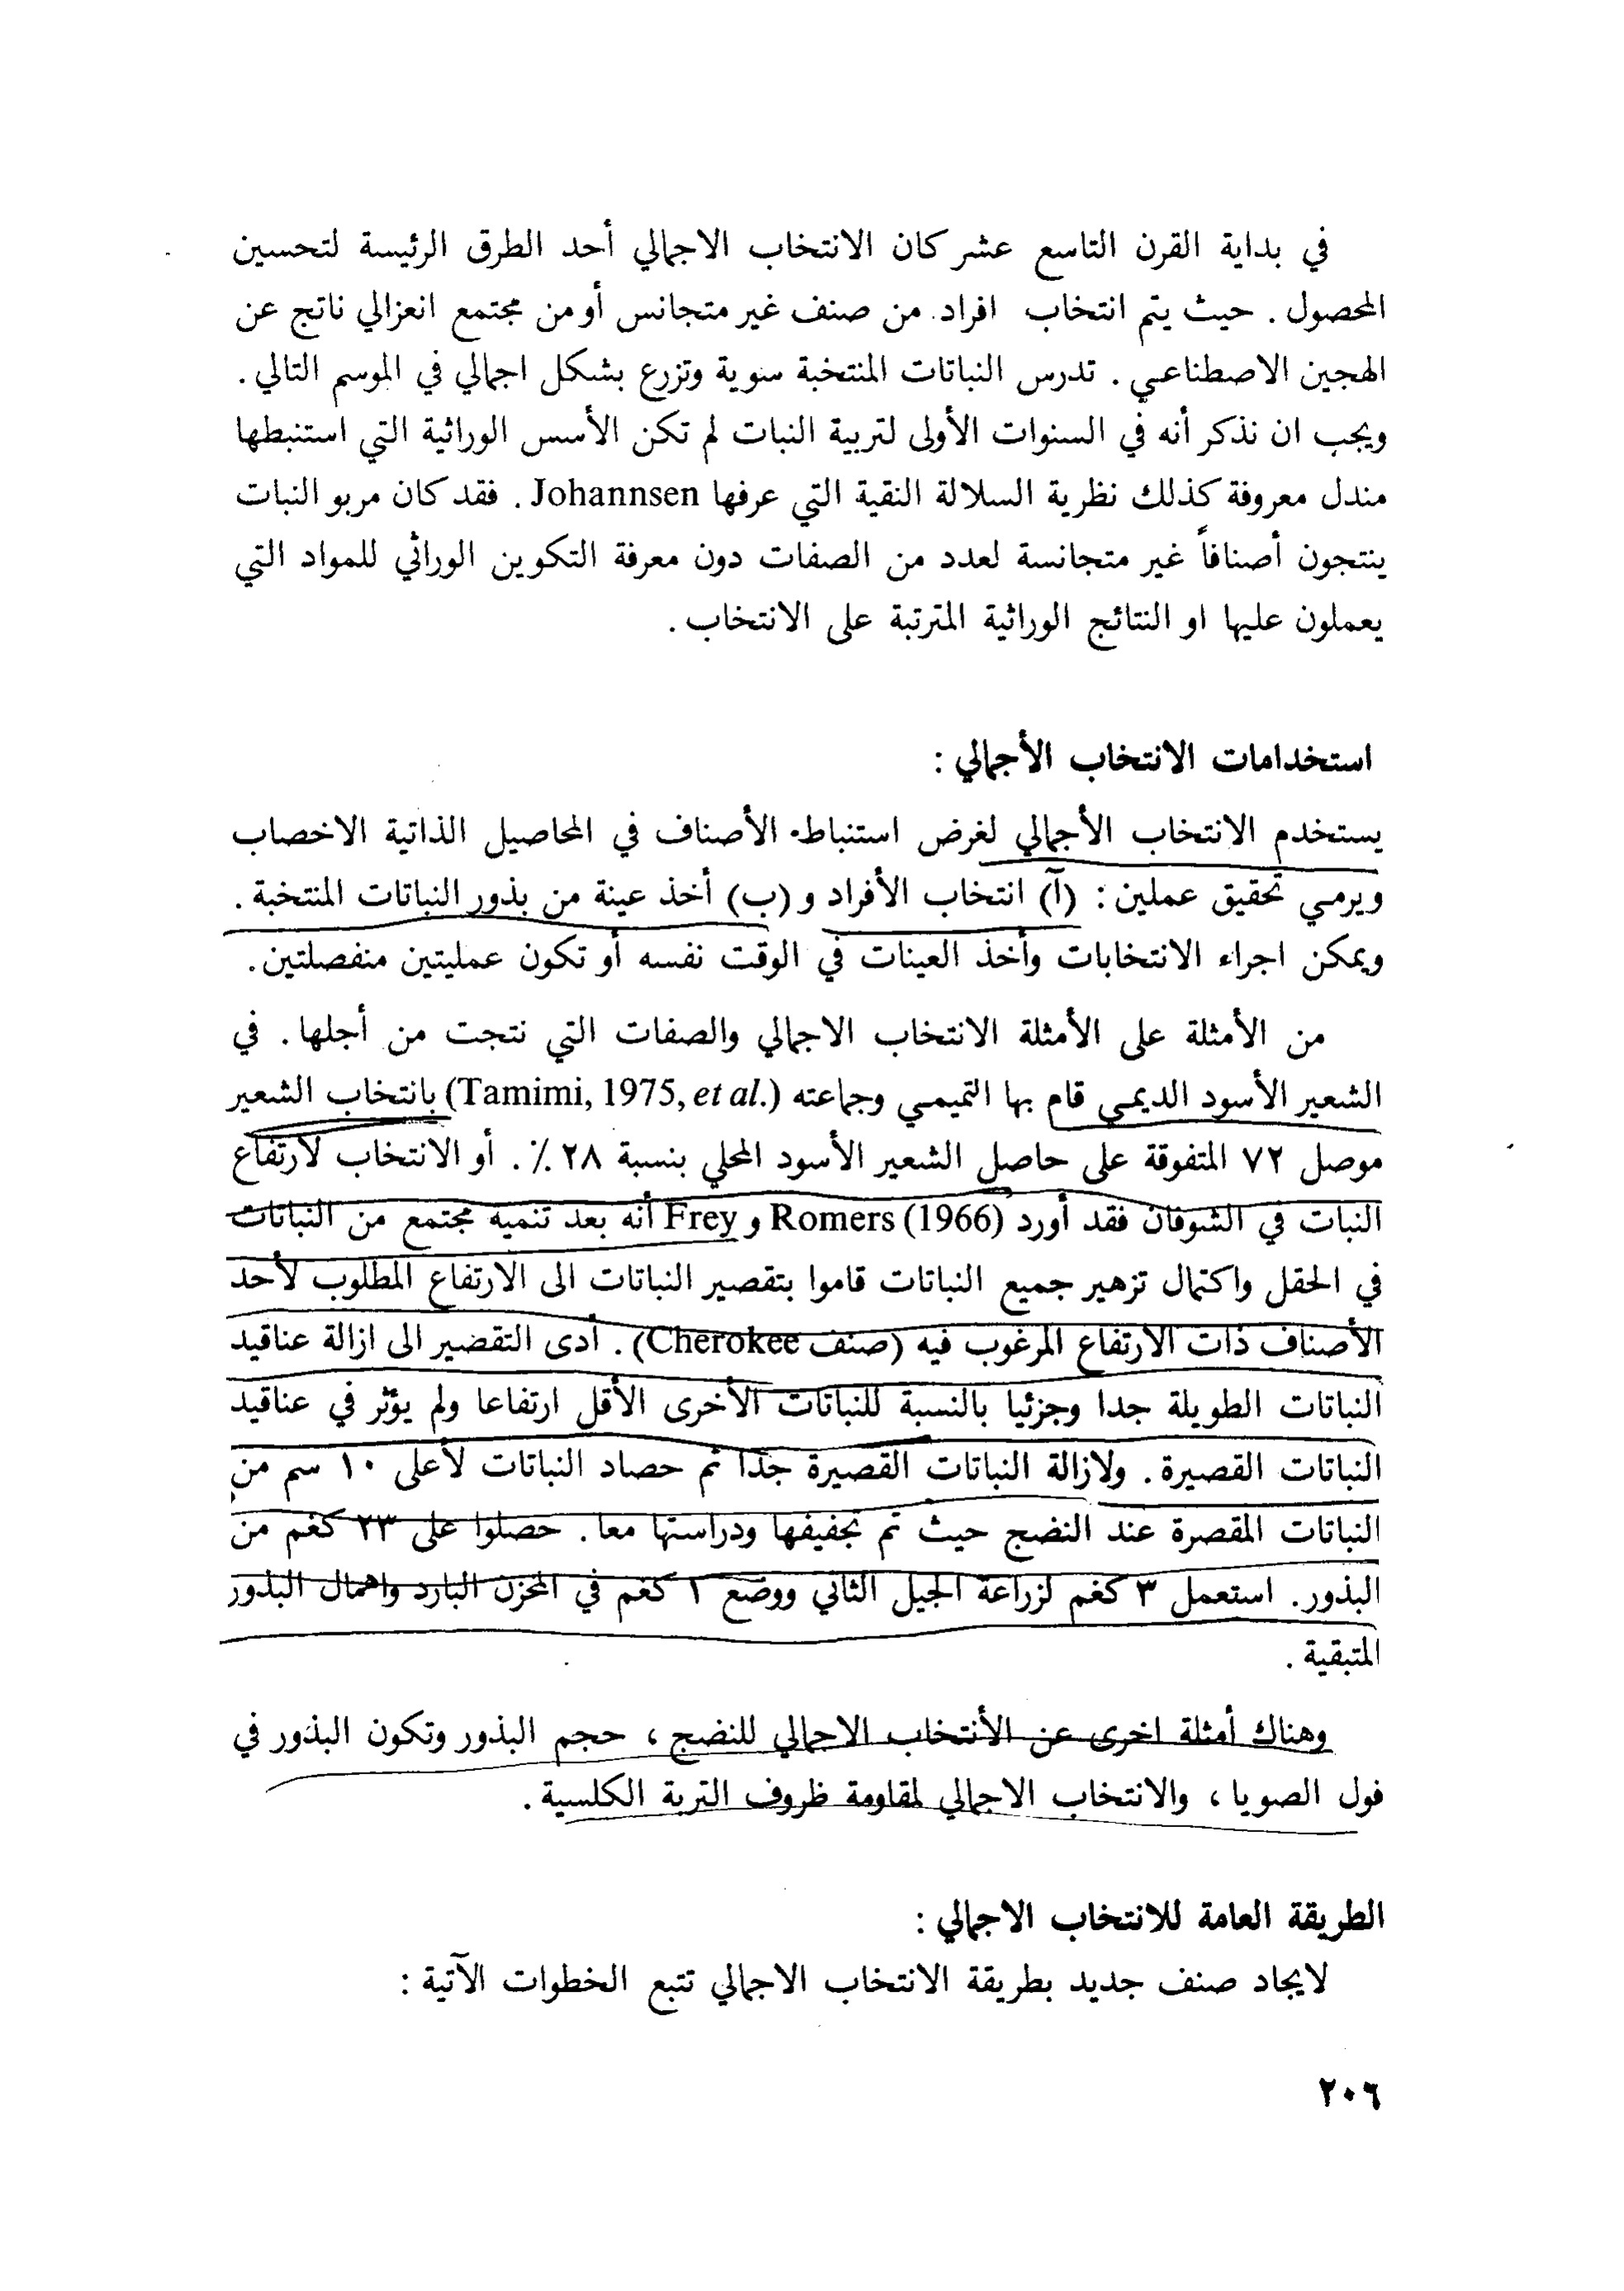 في بداية القرن التاسع عشر كان الانتخاب الاجمالي أحد الطرق الرئيسة لتحسين
المحصول . حيث يتم انتخاب افراد من صنف غير متجانس أو من مجتمع انعزالي ناتج عن
الهجين الاصطناعي . تدرس النباتات المنتخبة سوية وتزرع بشكل اجمالي في الموسم التالي .
ويجب ان نذكر أنه في السنوات الأولى لتربية النبات لم تكن الأسس الوراثية التي استنبطها
مندل معروفة كذلك نظرية السلالة النقية التي عرفها Johannsen . فقد كان مربو النبات
ينتجون أصنافاً غير متجانسة لعدد من الصفات دون معرفة التكوين الوراثي للمواد التي
يعملون عليها او النتائج الوراثية المترتبة على الانتخاب .
استخدامات الانتخاب الأجمالي :
يستخدم الانتخاب الأجمالي لغرض استنباط الأصناف في المحاصيل الذاتية الاخصاب
ويرمي تحقيق عملين : (آ) انتخاب الأفراد و (ب) أخذ عينة من بذور النباتات المنتخبة .
ويمكن اجراء الانتخابات وأخذ العينات في الوقت نفسه أو تكون عمليتين منفصلتين .
من الأمثلة على الأمثلة الانتخاب الاجمالي والصفات التي نتجت من أجلها . في
الشعير الأسود الديمي قام بها التميمي وجماعته (Tamimi, 1975, et al.) بانتخاب الشعير
موصل ٧٢ المتفوقة على حاصل الشعير الأسود المحلي بنسبة ٢٨ ٪ . أو الانتخاب لارتفاع
النبات في الشوفان فقد أورد Romers (1966) و Frey أنه بعد تنمية مجتمع من النباتات
في الحقل واكتمال تزهير جميع النباتات قاموا بتقصير النباتات الى الارتفاع المطلوب لأحد
الأصناف ذات الارتفاع المرغوب فيه (صنف Cherokee) . أدى التقضير الى ازالة عناقيد
النباتات الطويلة جدا وجزئيا بالنسبة للنباتات الأخرى الأقل ارتفاعا ولم يؤثر في عناقيد
النباتات القصيرة . ولازالة النباتات القصيرة جدا تم حصاد النباتات لأعلى ١٠ سم من
النباتات المقصرة عند النضج حيث تم تجفيفها ودراستها معا . حصلوا على ٢٣ كغم من
البذور . استعمل ٣ كغم لزراعة الجيل الثاني ووضع ١ كغم في المخزن البارد واهمال البذور
المتبقية .
وهناك أمثلة اخرى عن الأنتخاب الاجمالي للنضج ، حجم البذور وتكون البذور في
فول الصويا ، والانتخاب الاجمالي لمقاومة ظروف التربة الكلسية .
الطريقة العامة للانتخاب الاجمالي :
لايجاد صنف جديد بطريقة الانتخاب الاجمالي تتبع الخطوات الآتية :
٢٠٦